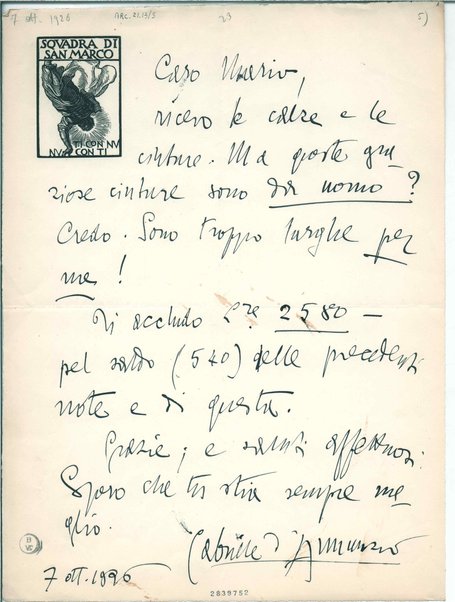 7 ott. 1926 ARC.21.19/5 23 5)
SQVADRA DI
SAN MARCO
TI CON NV
NV CON TI
Caro Mario,
ricevo le calze e le
cinture. Ma queste gra-
ziose cinture sono da uomo?
Credo. Sono troppo larghe per
me!
Ti accludo Lre 2580 –
pel saldo (540) delle precedenti
note e di questa.
Grazie; e saluti affettuosi.
Spero che tu stia sempre me-
glio.
Gabriele d'Annunzio
7 ott. 1926
2839752